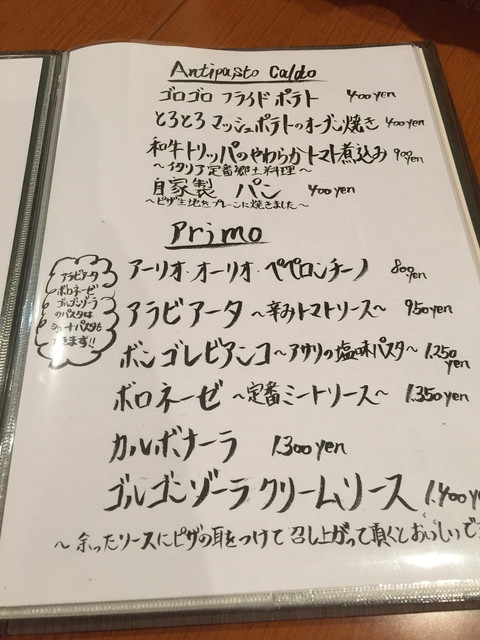 Antipasto Caldo
ゴロゴロ フライドポテト 400yen
とろとろ マッシュポテトのオーブン焼き 400yen
和牛トリッパのやわらかトマト煮込み 900yen
〜イタリア定番郷土料理〜
自家製 パン 400yen
〜ピザ生地をプレーンに焼きました〜
Primo
アラビアータ
ボロネーゼ
ゴルゴンゾーラ
のパスタは
ショートパスタも
できます!!
アーリオ・オーリオ・ペペロンチーノ 800yen
アラビアータ 〜辛みトマトソース〜 950yen
ボンゴレビアンコ〜アサリの塩味パスタ〜 1.250yen
ボロネーゼ 〜定番ミートソース〜 1.350yen
カルボナーラ 1.300yen
ゴルゴンゾーラ クリームソース 1.400y
〜余ったソースにピザの耳をつけて召し上がって頂くとおいしいで